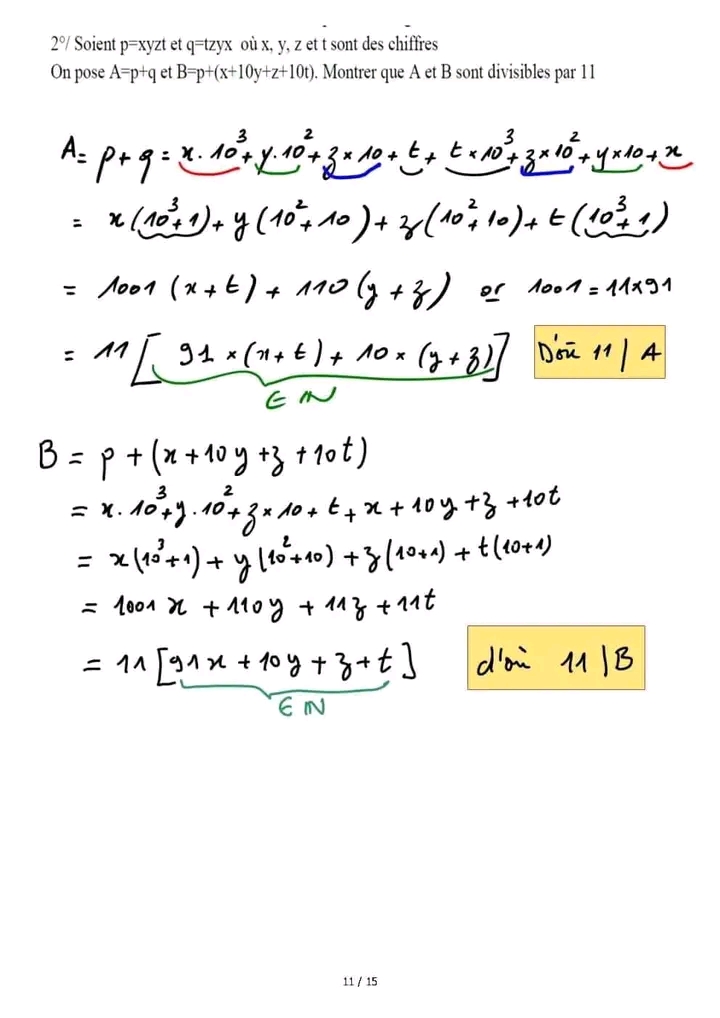 2°/ Soient p=xyzt et q=tzyx où x, y, z et t sont des chiffres
On pose A=p+q et B=p+(x+10y+z+10t). Montrer que A et B sont divisibles par 11
A = p + q = x . 10³ + y . 10² + z × 10 + t + t × 10³ + z × 10² + y × 10 + x
= x (10³ + 1) + y (10² + 10) + z (10² + 10) + t (10³ + 1)
= 1001 (x + t) + 110 (y + z) or 1001 = 11×91
= 11 [ 91 × (x + t) + 10 × (y + z) ] D'où 11 | A
∈ ℕ
B = p + (x + 10y + z + 10t)
= x . 10³ + y . 10² + z × 10 + t + x + 10y + z + 10t
= x (10³ + 1) + y (10² + 10) + z (10 + 1) + t (10 + 1)
= 1001 x + 110y + 11z + 11t
= 11 [ 91x + 10y + z + t ] d'où 11 | B
∈ ℕ
11 / 15